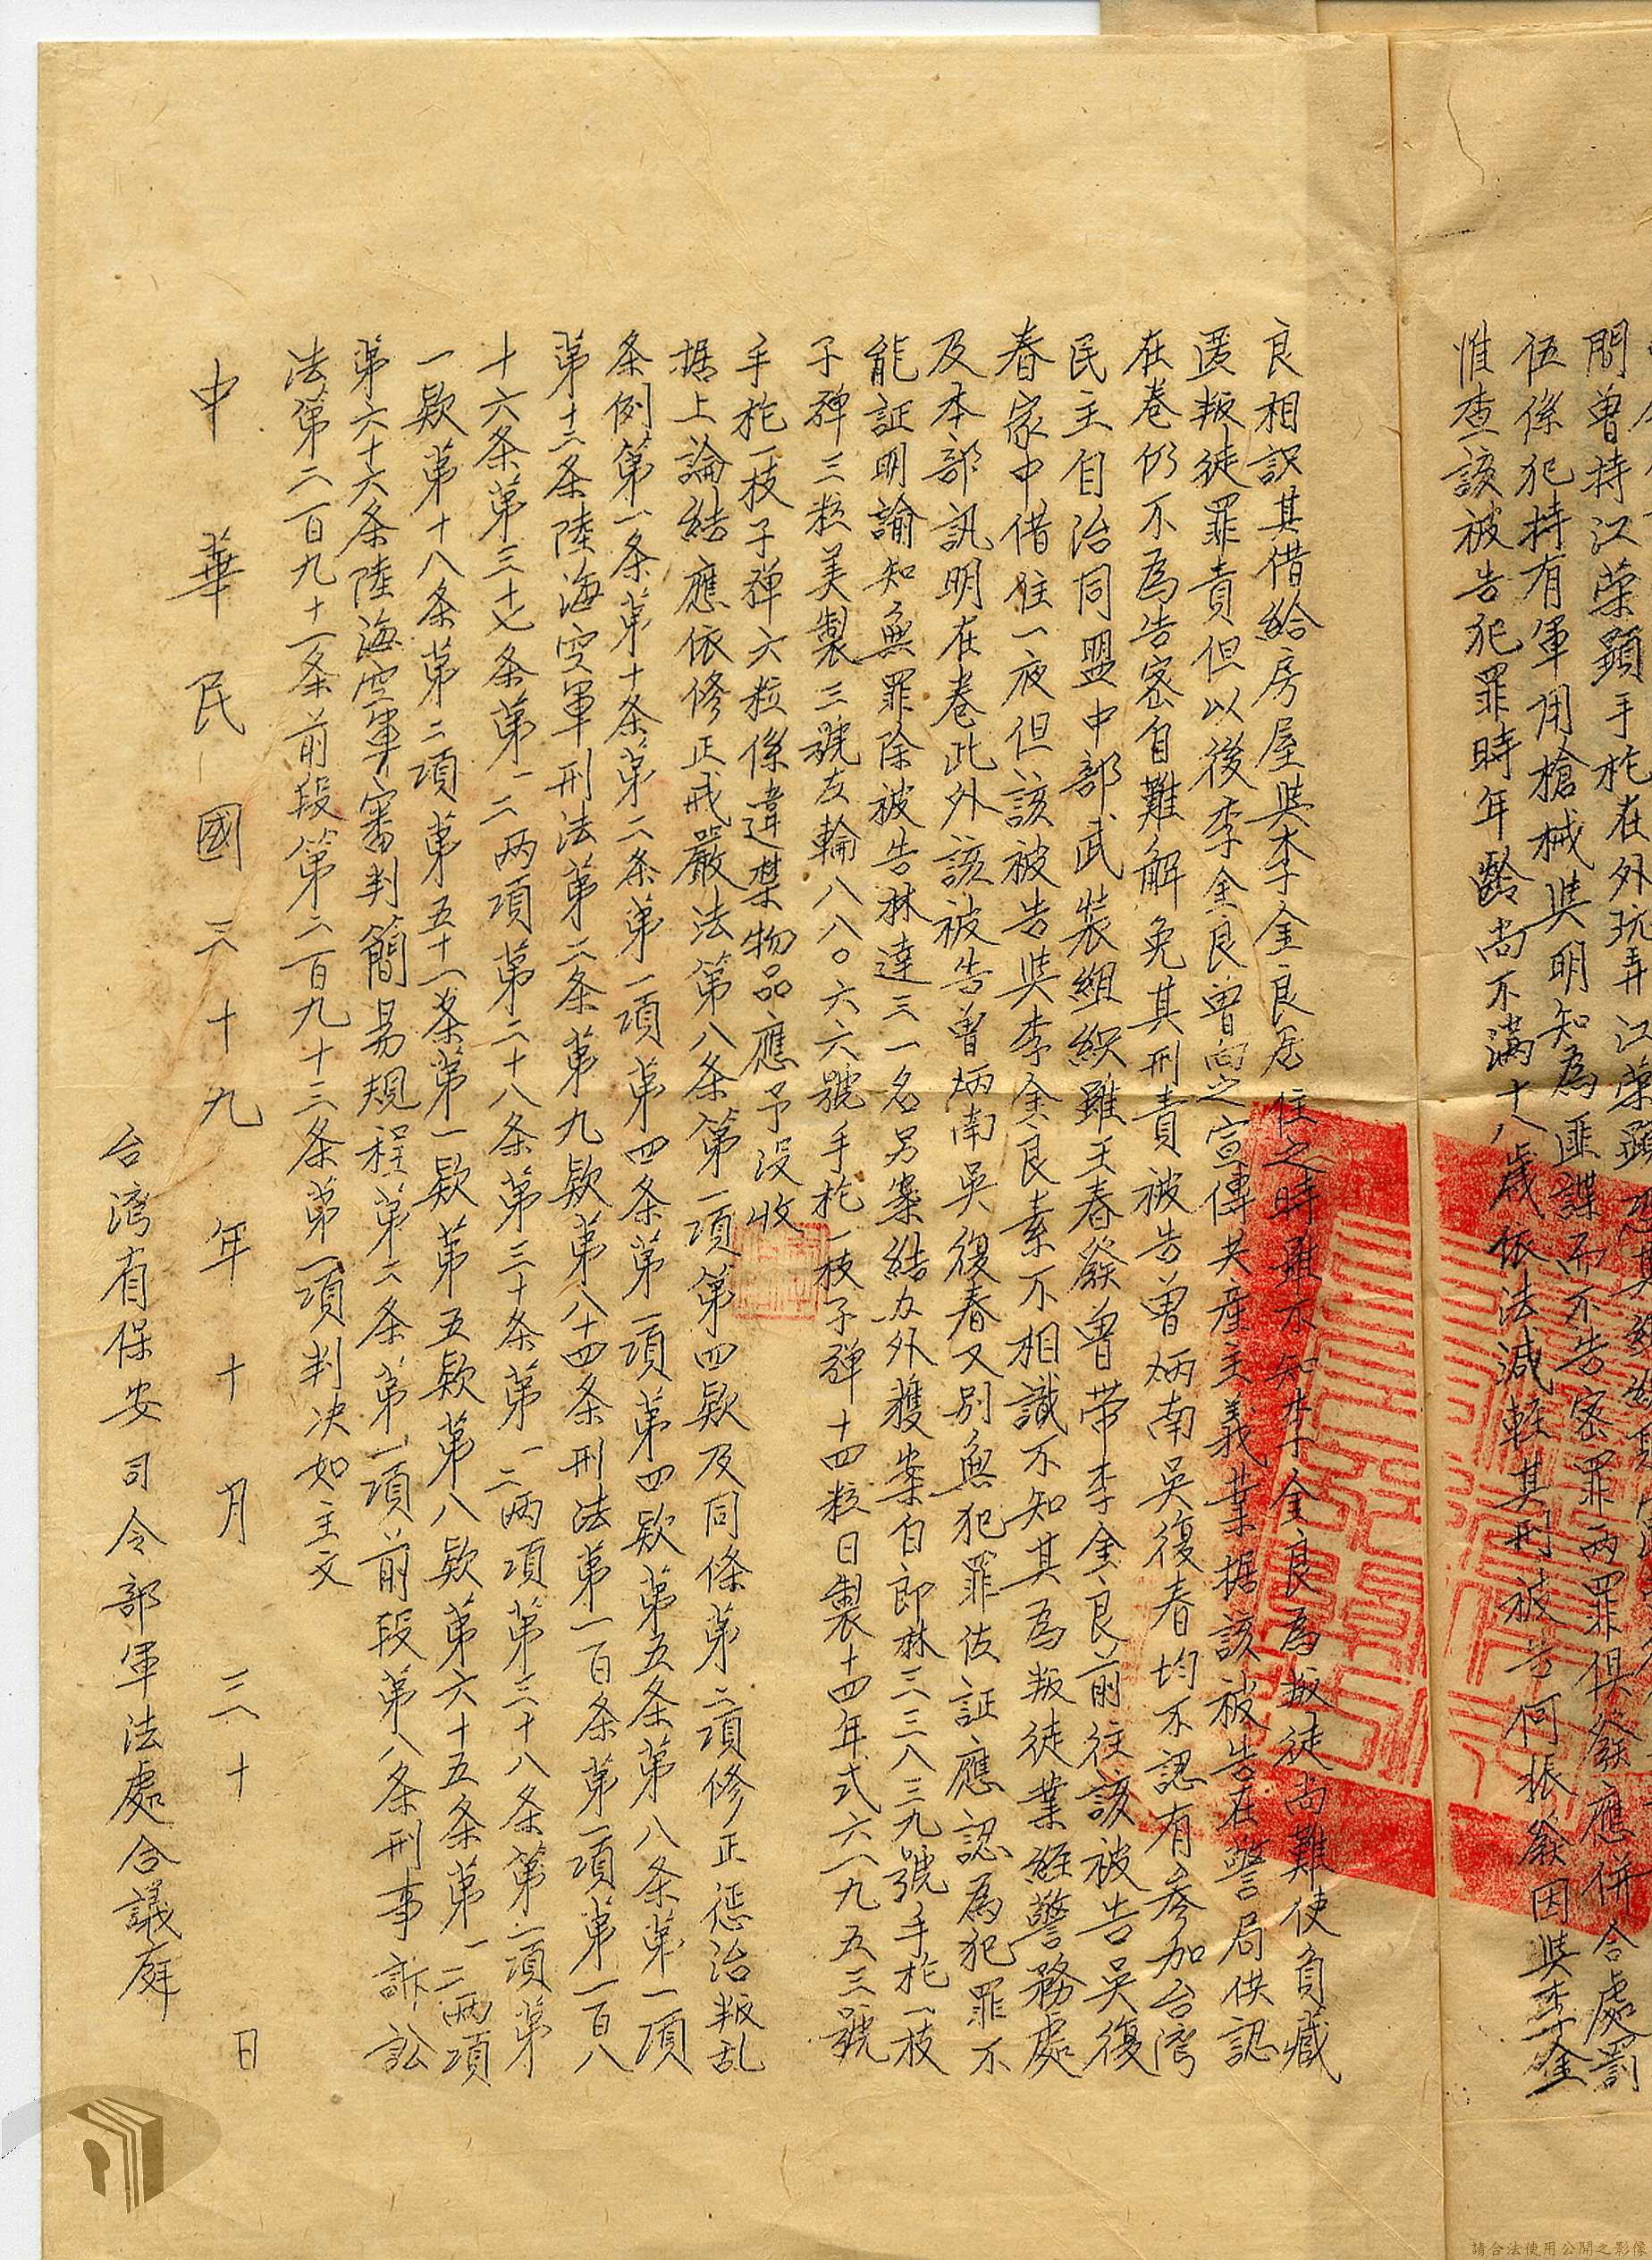 間曾持江荣顕手枪在外玩弄江荣顕
伍係犯持有軍用槍械與明知為匪諜而不告密罪两罪俱發應併合處罰
惟查該被告犯罪時年齡尚不满十八歲依法減輕其刑被告何振發因與李金
良相識其借給房屋與李金良居住之時雖不知李金良為叛徒尚難使負藏
匿叛徒罪責但以後李金良曾向之宣傳共產主義業据該被告在警局供認
在卷仍不為告密自難解免其刑責被告曾炳南吳復春均不認有參加台湾
民主自治同盟中部武裝組織雖王春發曾带李金良前往該被告吳復
春家中借住一夜但該被告與李金良素不相識不知其為叛徒業經警務處
及本部訊明在卷此外該被告曾炳南吳復春又別無犯罪佐証應認為犯罪不
能証明諭知無罪除被告林達三一名另案結办外獲案白郎林三三八三九號手枪一枝
子弹三粒美製三號左輪八八〇六六號手枪一枝子弹十四粒日製十四年式六一九五三號
手枪一枝子弹六粒係違禁物品應予没收
据上論結應依修正戒嚴法第八条第一項第四欵及同條第二項修正惩治叛乱
条例第一条第十条第二条第一項第四条第一項第四欵第五条第八条第一項
第十三条陸海空軍刑法第二条第九欵第八十四条刑法第一百条第一項第一百八
十六条第三十七条第一二两項第二十八条第三十条第一二两項第三十八条第二項第
一欵第十八条第二項第五十一条第一欵第五欵第八欵第六十五条第一二两項
第六十六条陸海空軍審判簡易規程第六条第一項前段第八条刑事訴訟
法第二百九十一条前段第二百九十三条第一項判决如主文
中華民國三十九年十月三十日
台湾省保安司令部軍法處合議庭
請合法使用公開之影像